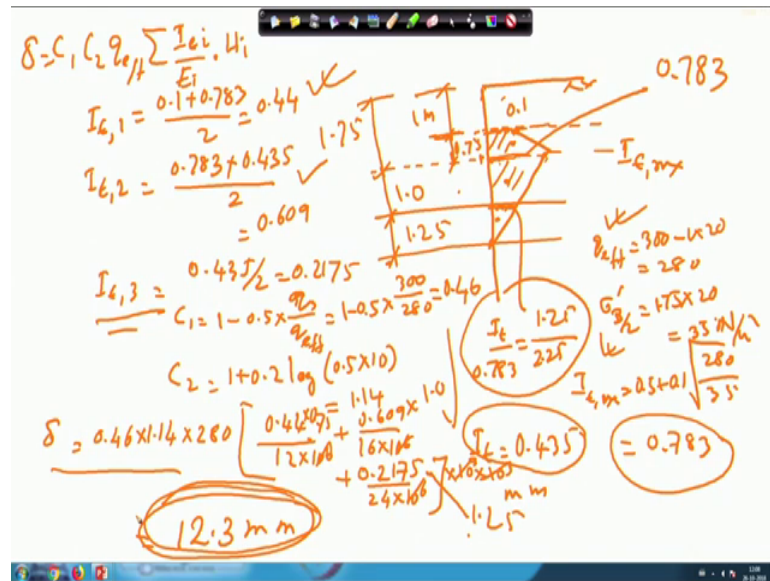 δ = C₁ C₂ q_eff Σ I_εi/E_i · H_i
I_ε,1 = (0.1+0.783)/2 = 0.44
I_ε,2 = (0.783+0.435)/2
= 0.609
I_ε,3 = 0.435/2 = 0.2175
C₁ = 1 - 0.5 × q_o/q_eff = 1 - 0.5 × 300/280 = 0.46
C₂ = 1 + 0.2 log (0.5×10)
= 1.14
δ = 0.46×1.14×280 [ 0.44×0.75/12×10³ + 0.609×1.0/16×10³
+ 0.2175/24×10³ ] ×10³
1.25
mm
12.3 mm
1.75
1m
0.75
1.0
1.25
0.1
0.783
I_ε,mx
q_eff = 300 - 1×20
= 280
σ'_B/2 = 1.75×20
= 35 kN/m²
I_ε,m = 0.5 + 0.1 √(280/35)
= 0.783
I_ε/0.783 = 1.25/2.25
I_ε = 0.435